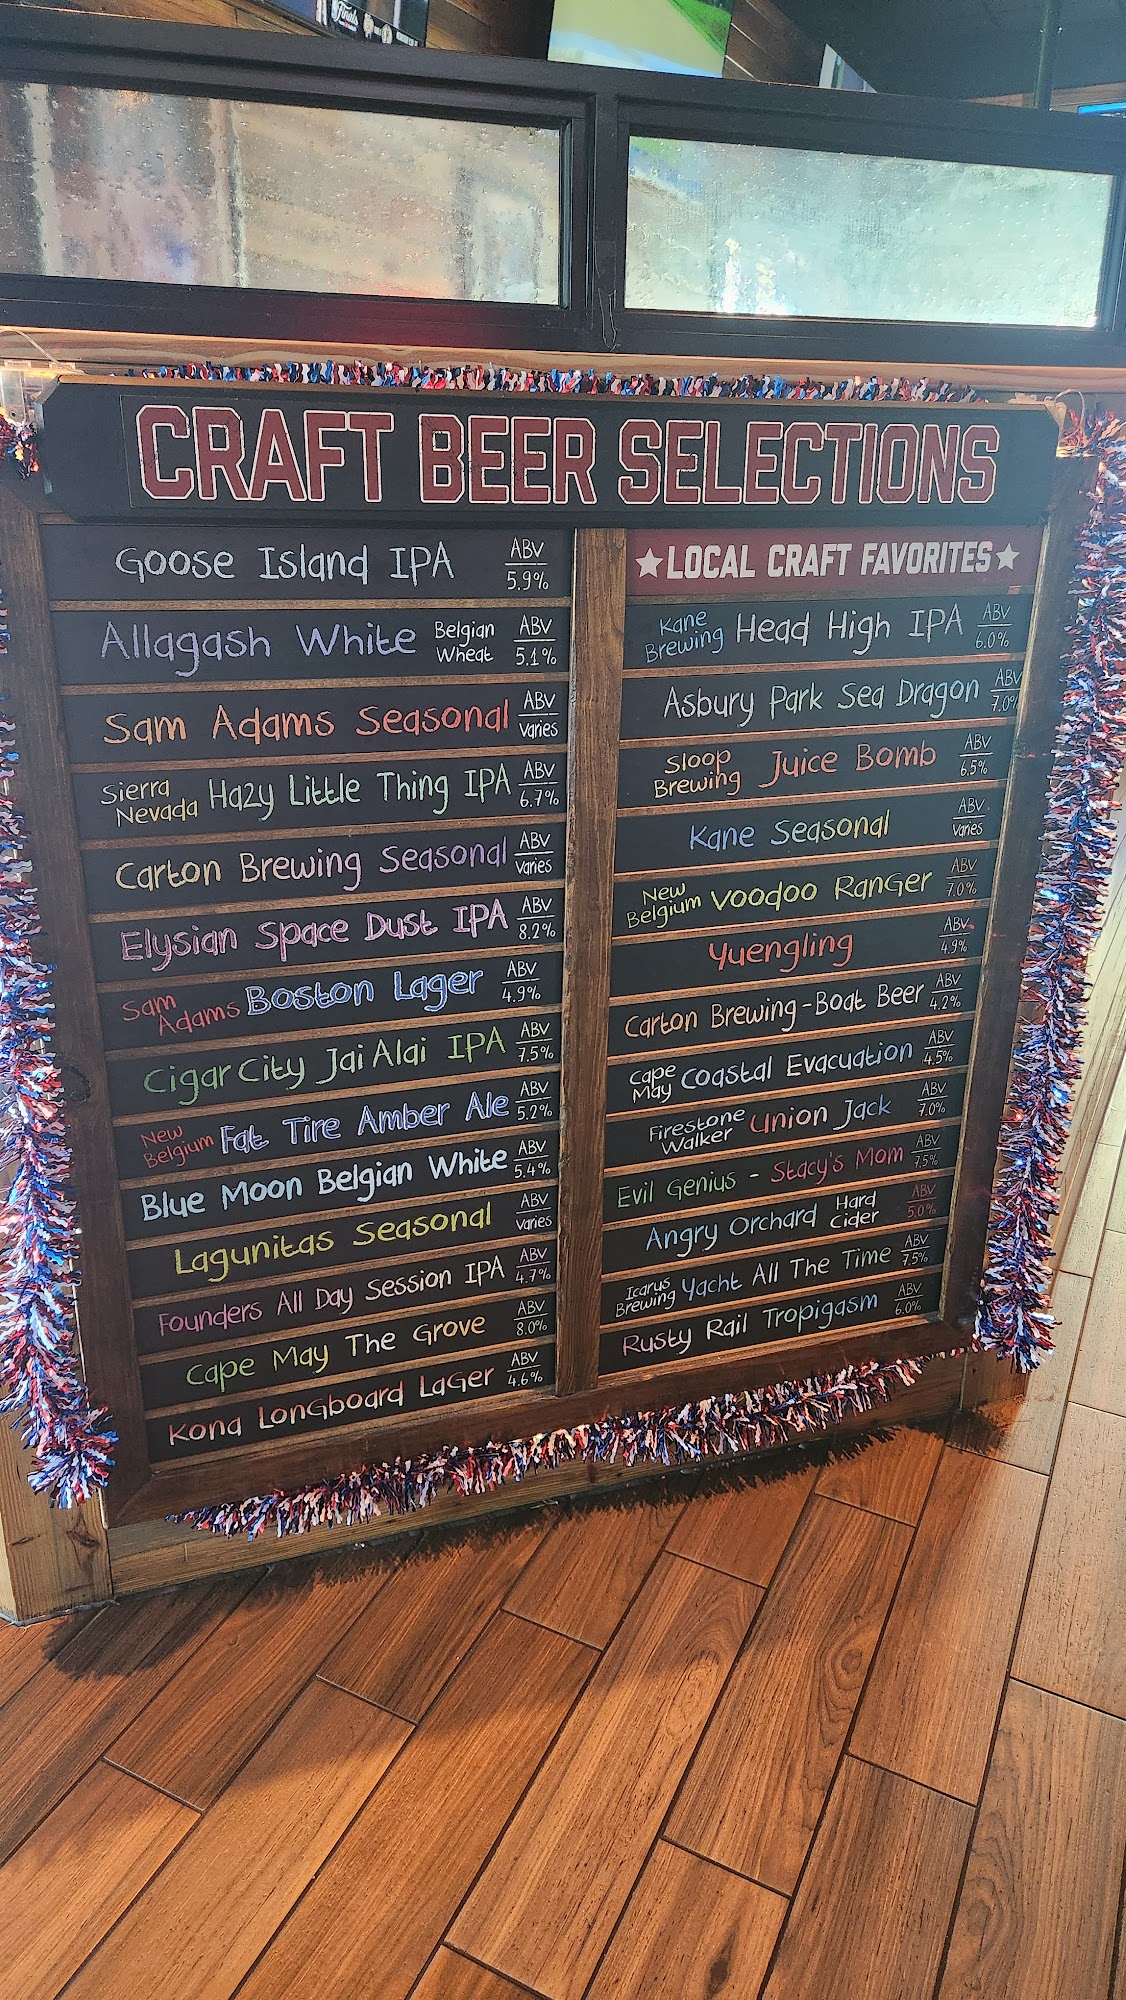 Finals
CRAFT BEER SELECTIONS
Goose Island IPA ABV 5.9%
Allagash White Belgian Wheat ABV 5.1%
Sam Adams Seasonal ABV varies
Sierra Nevada Hazy Little Thing IPA ABV 6.7%
Carton Brewing Seasonal ABV varies
Elysian Space Dust IPA ABV 8.2%
Sam Adams Boston Lager ABV 4.9%
Cigar City Jai Alai IPA ABV 7.5%
New Belgium Fat Tire Amber Ale ABV 5.2%
Blue Moon Belgian White ABV 5.4%
Lagunitas Seasonal ABV varies
Founders All Day Session IPA ABV 4.7%
Cape May The Grove ABV 8.0%
Kona Longboard Lager ABV 4.6%
★LOCAL CRAFT FAVORITES★
Kane Brewing Head High IPA ABV 6.0%
Asbury Park Sea Dragon ABV 7.0%
Sloop Brewing Juice Bomb ABV 6.5%
Kane Seasonal ABV varies
New Belgium Voodoo Ranger ABV 7.0%
Yuengling ABV 4.9%
Carton Brewing-Boat Beer ABV 4.2%
Cape May Coastal Evacuation ABV 4.5%
Firestone Walker Union Jack ABV 7.0%
Evil Genius - Stacy's Mom ABV 7.5%
Angry Orchard Hard Cider ABV 5.0%
Icarus Brewing Yacht All The Time ABV 7.5%
Rusty Rail Tropigasm ABV 6.0%